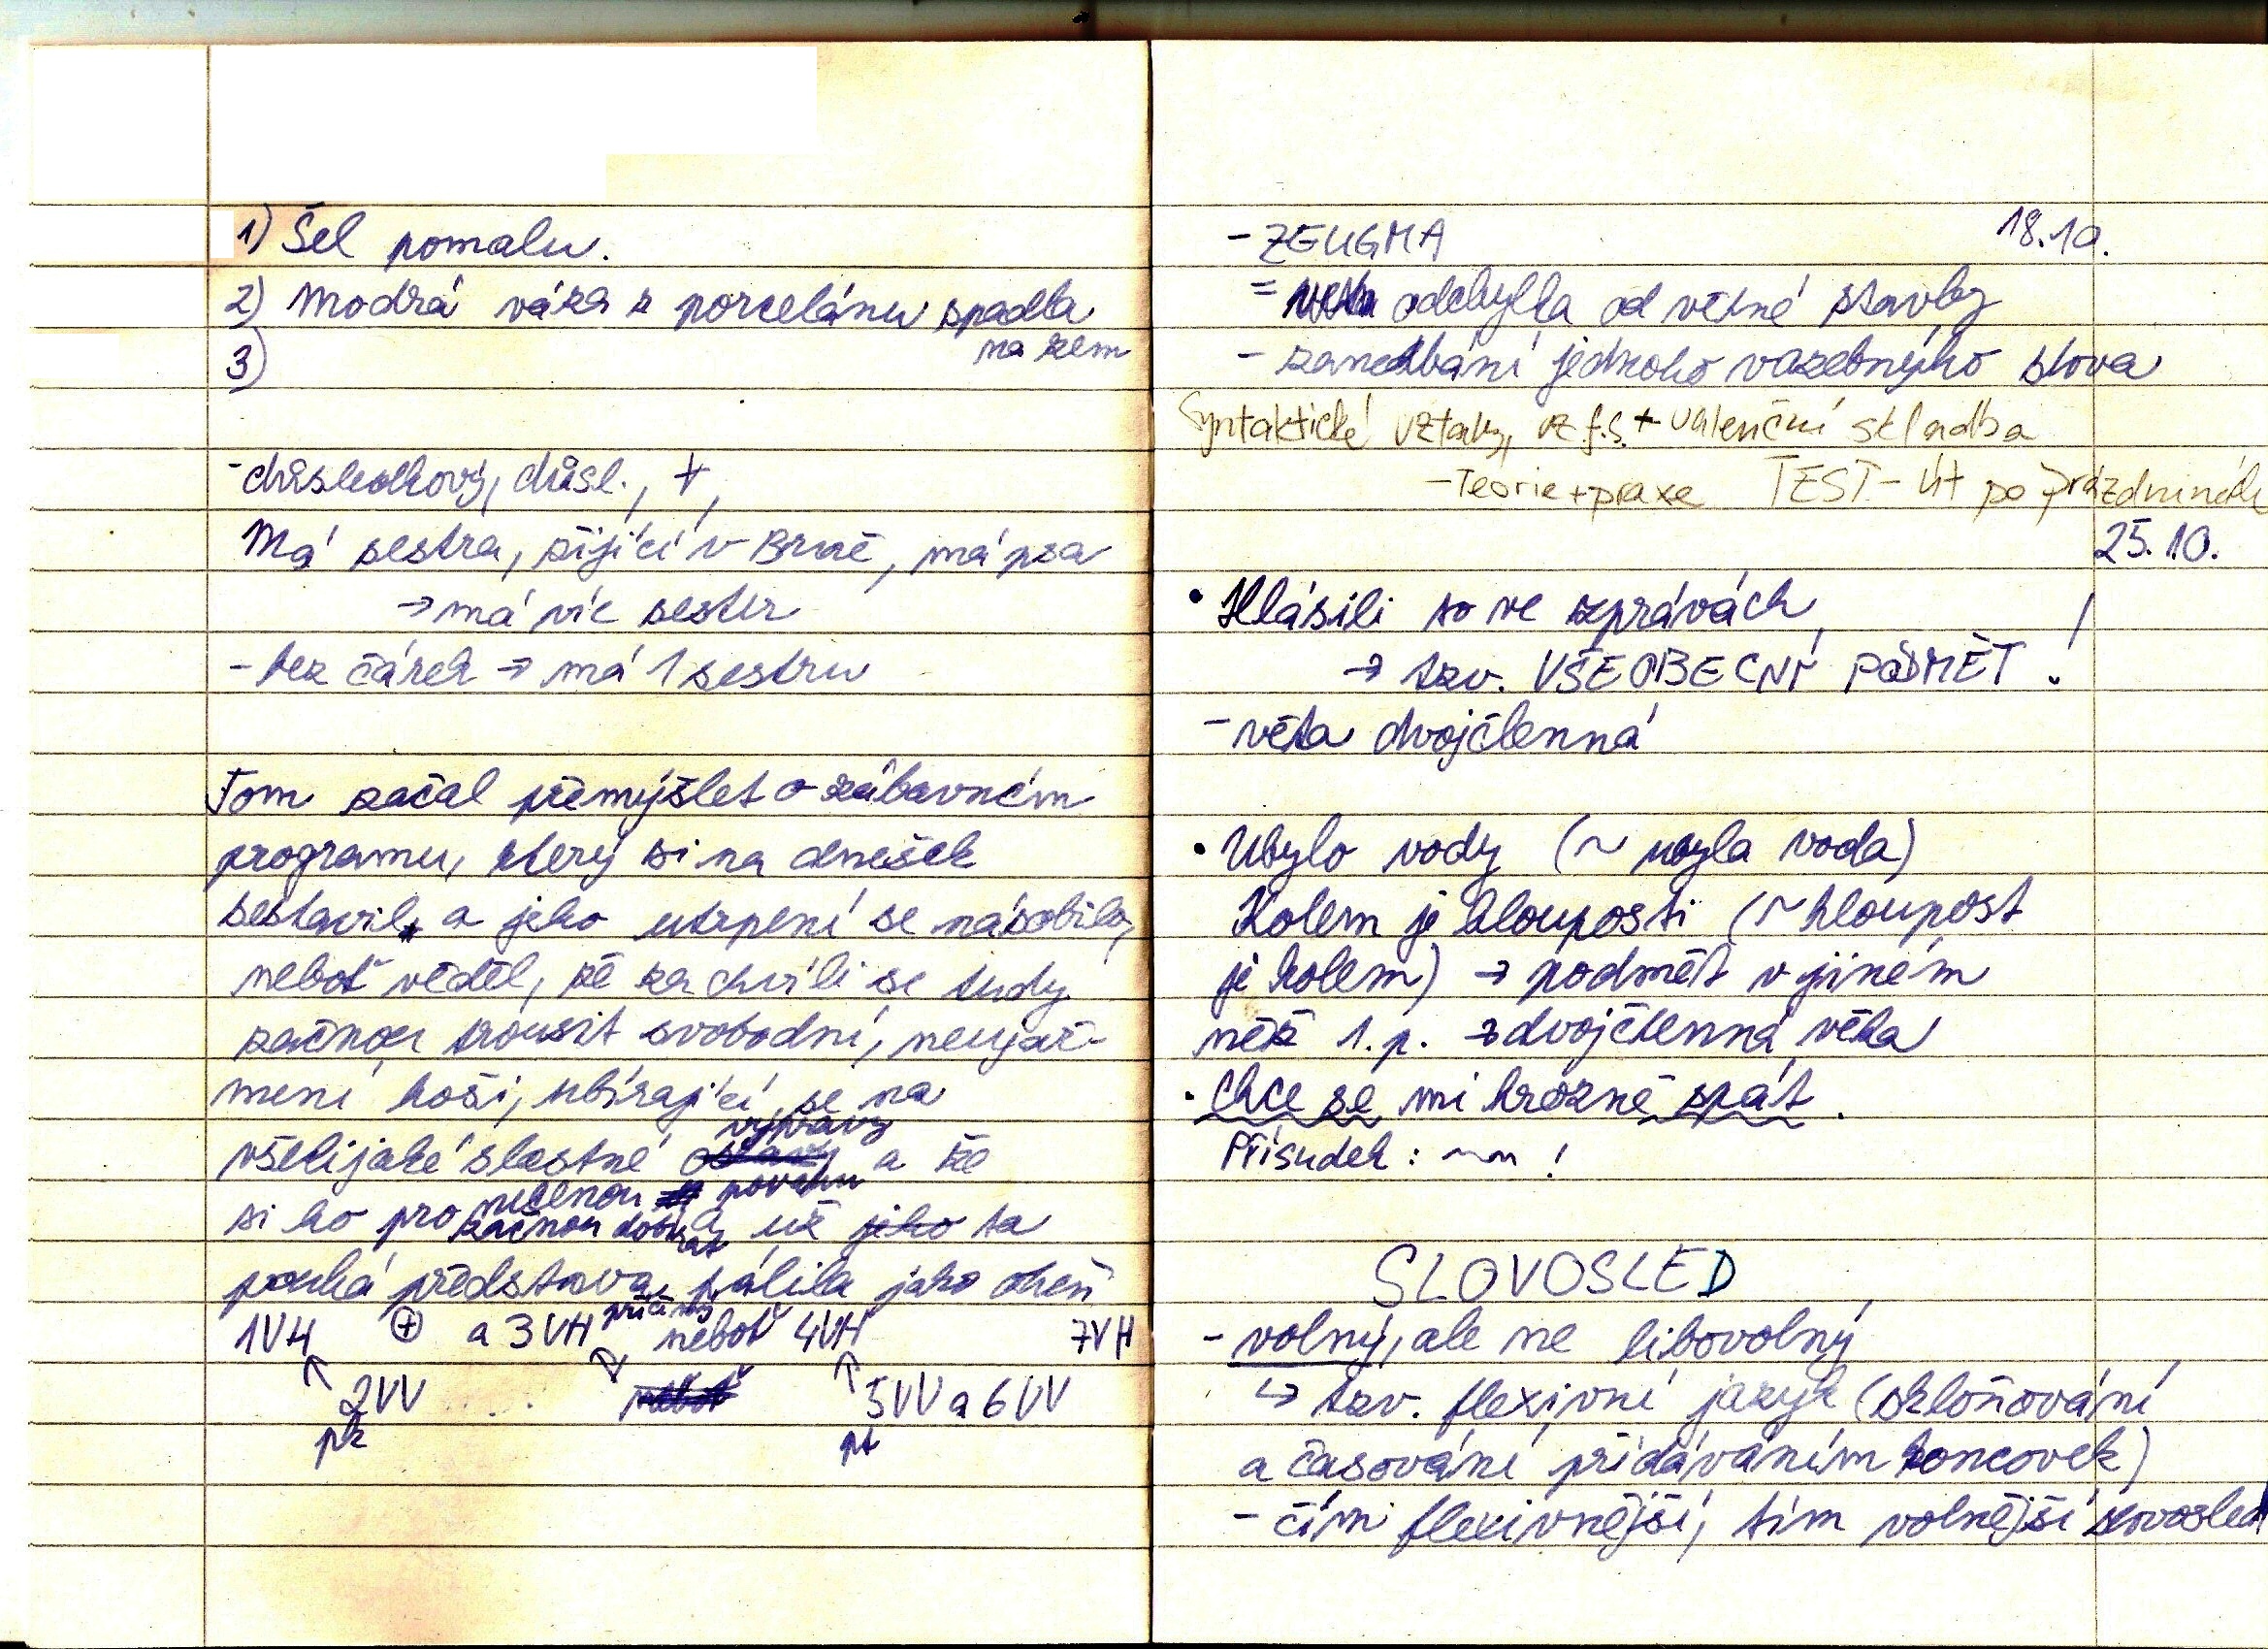 1) Šel pomalu.
2) Modrá váza z porcelánu spadla
na zem
3)
- důsledkový, důsl., +,
Má sestra, žijící v Brně, má psa
→ má víc sester
- bez čárek → má 1 sestru
Tom začal přemýšlet o zábavném
programu, který si na dnešek
sestavil, a jeho utrpení se násobilo,
neboť věděl, že za chvíli se tudy
začnou trousit svobodní, neujař-
mení hoši, ubírající se na
výpravy
všelijaké slastné oslavy a že
mučenou povahu
si ho pro začnou dobírat, už jeho ta
pouhá představa pálila jako oheň
1VH ⊕ a 3VH příčinný neboť 4VH 7VH
2VV neboť 5VV a 6VV
pt
- ZEUGMA 18.10.
= odchylka od větné stavby
- zanedbání jednoho vazebnýho slova
Syntaktické vztahy, vz.f.s. + valenční skladba
- Teorie + praxe TEST - Út po prázdninách
25.10.
• Hlásili to ve zprávách
→ tzv. VŠEOBECNÝ PODMĚT !
- věta dvojčlenná
• Ubylo vody (~ ubyla voda)
Kolem je hlouposti (~ hloupost
je kolem) → podmět v jiném
něž 1.p. → dvojčlenná věta
• Chce se mi hrozně spát.
Přísudek: ~~ !
SLOVOSLED
- volný, ale ne libovolný
↳ tzv. flexivní jazyk (skloňování
a časování přidáváním koncovek)
- čím flexivnější, tím volnější slovosled